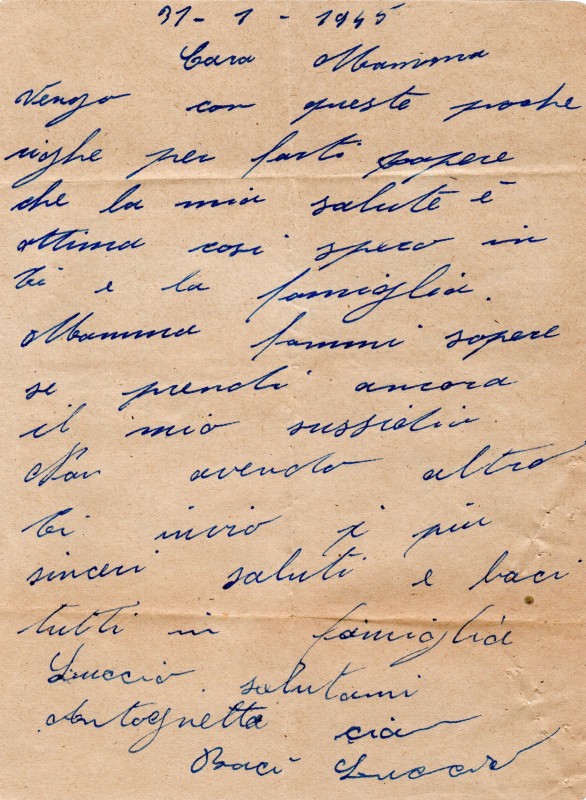 31 - 1 - 1945
Cara Mamma
Vengo con queste poche
righe per farti sapere
che la mia salute è
ottima cosi spero in
ti e la famiglia.
Mamma fammi sapere
se prendi ancora
il mio sussidio
Non avendo altro
ti invio i più
sinceri saluti e baci
tutti in famiglia
Luccio salutami
Antognetta ciao
Baci Luccio